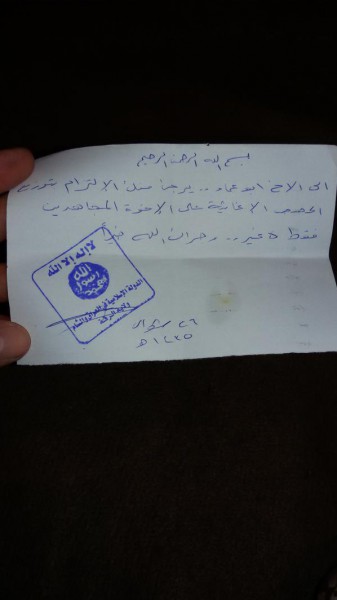 بسم الله الرحمن الرحيم
الى الاخ ابو عماد .. يرجى منك الالتزام بتوزيع
الحصص الاغاثية على الاخوة المجاهدين
فقط لا غير .. وجزاك الله خيراً
لا إله إلا الله
الله
رسول
محمد
الدولة الإسلامية في العراق والشام
ولاية البركة
٢٦
١٤٣٥ هـ